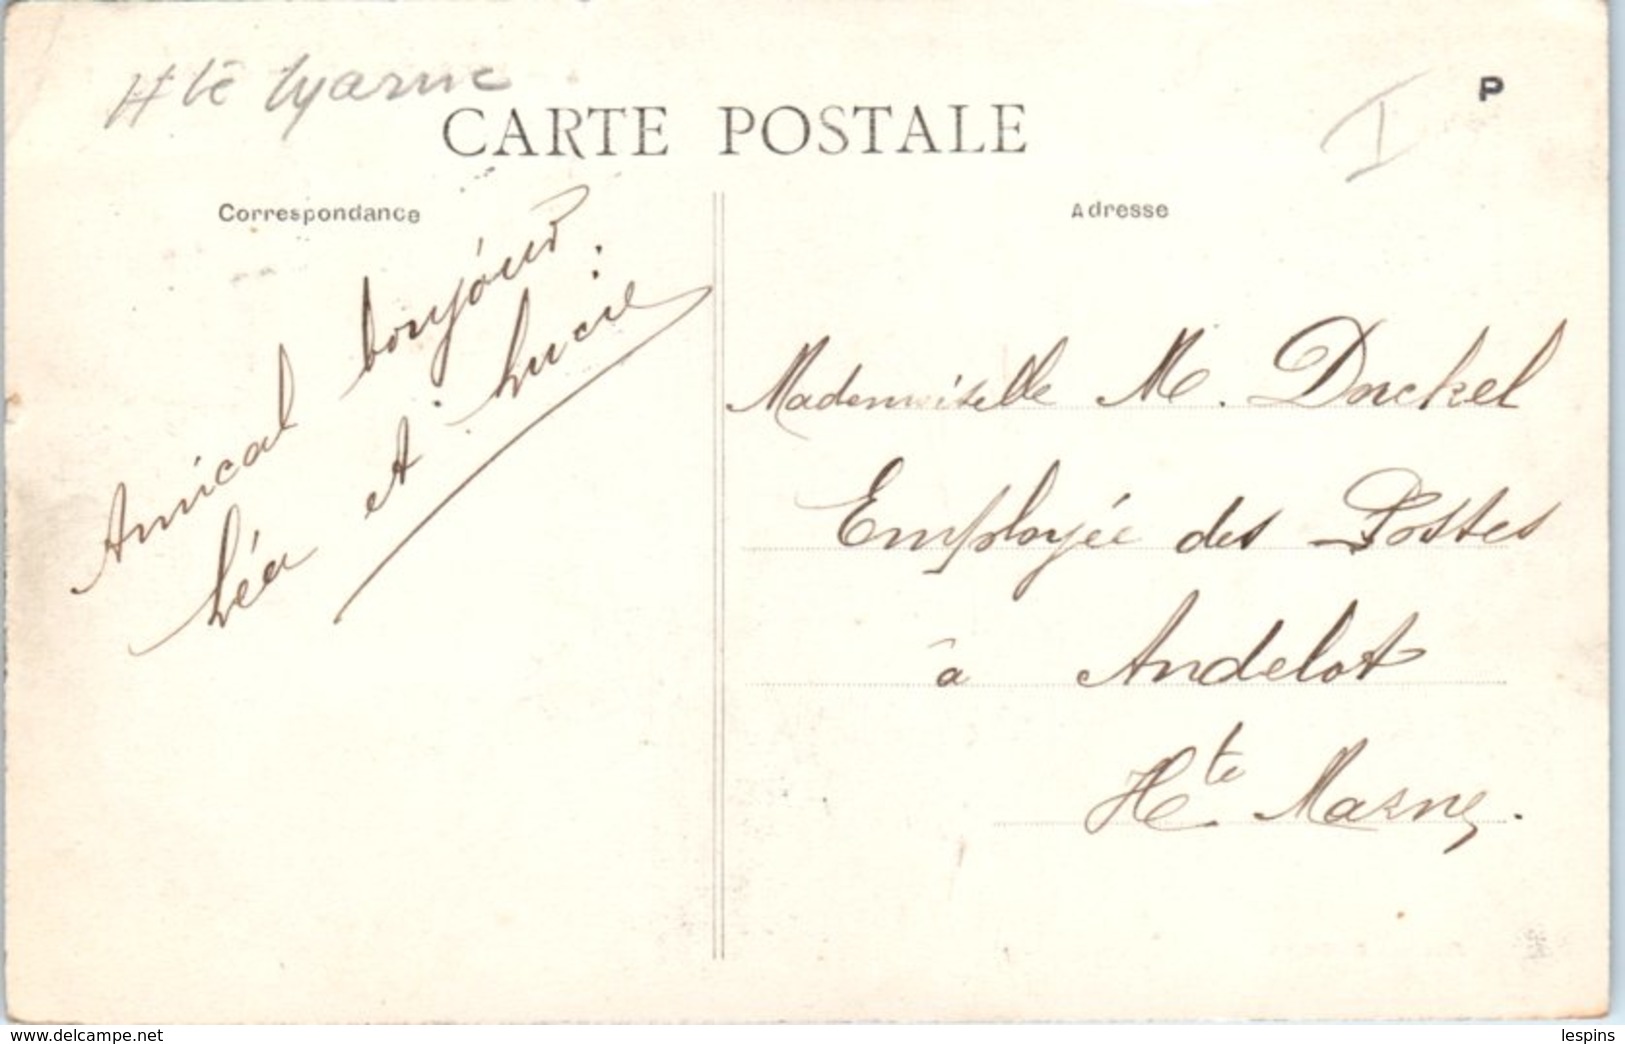 Hte Marne
CARTE POSTALE
I
P
Correspondance
Amical bonjour.
Léa et Lucie
Adresse
Mademoiselle M. Duckel
Employée des Postes
à Andelot
Hte Marne.
www.delcampe.net
lespins